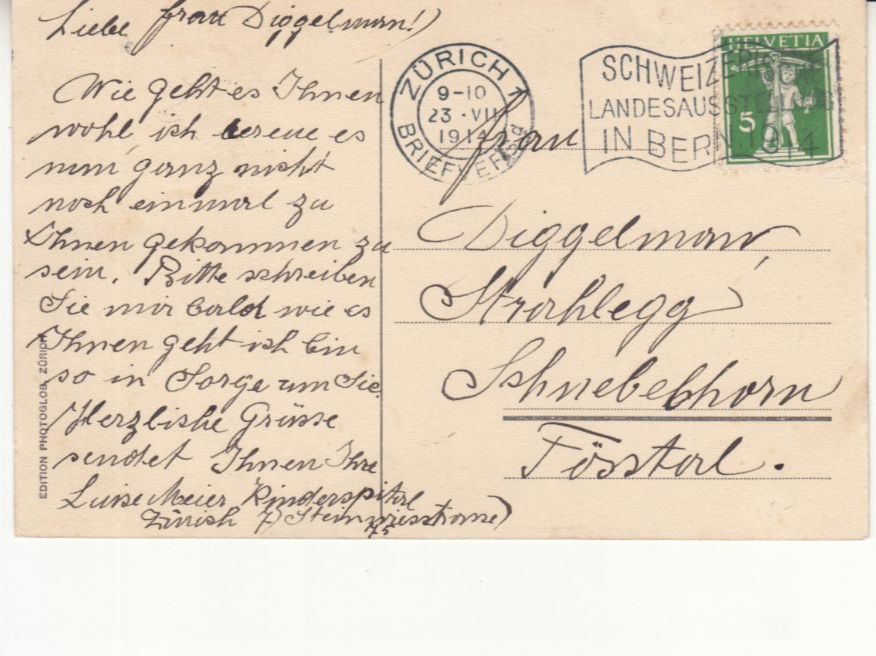 Liebe Frau Diggelman!)
Wie geht es Ihnen
wohl, ich bereue es
nun, ganz nicht
noch einmal zu
Ihnen gekommen zu
sein. Bitte schreiben
Sie mir bald wie es
Ihnen geht ich bin
so in Sorge um Sie.
Herzliche Grüsse
sendet Ihnen Ihre
Luise Meier Kinderspital
Zürich 7) Steinwiesstrasse)
75
EDITION PHOTOGLOB, ZÜRICH
ZÜRICH 1
9-10
23·VII
1914
BRIEFVERSD
SCHWEIZERISCHE
LANDESAUSSTELLUNG
IN BERN 1914
HELVETIA
5
Frau
Diggelman,
Strahlegg
Schnebelhorn
Tösstal.